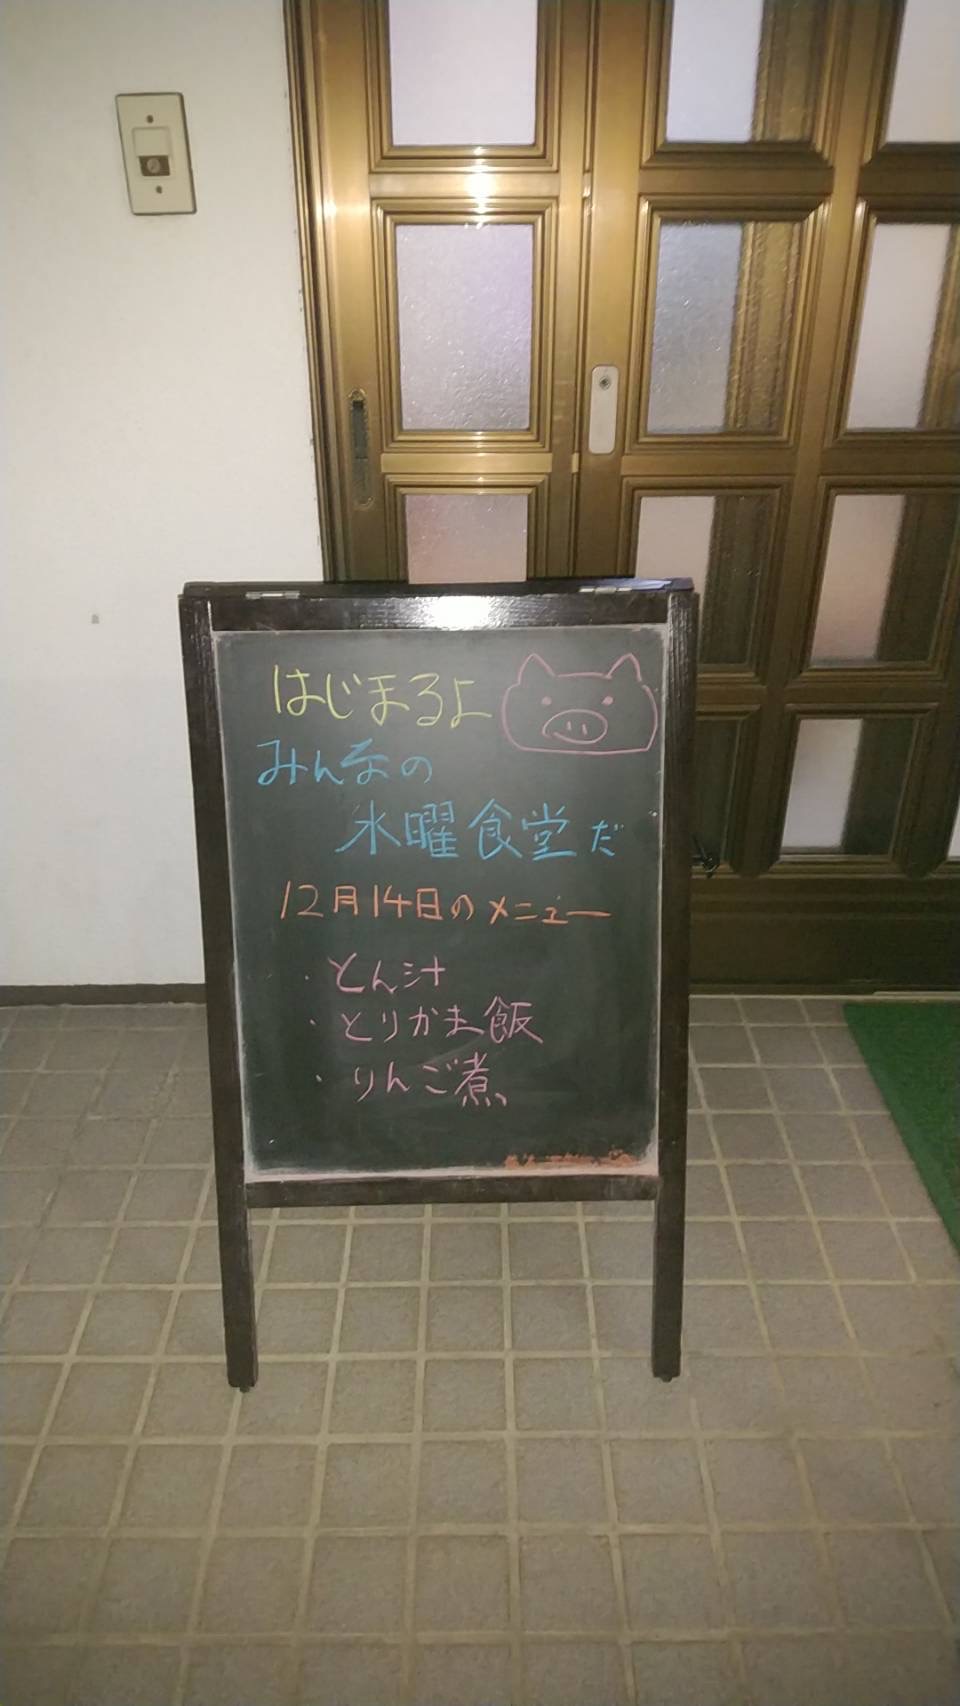 はじまるよ
みんなの
水曜食堂だ
12月14日のメニュー
・とん汁
・とりかま飯
・りんご煮